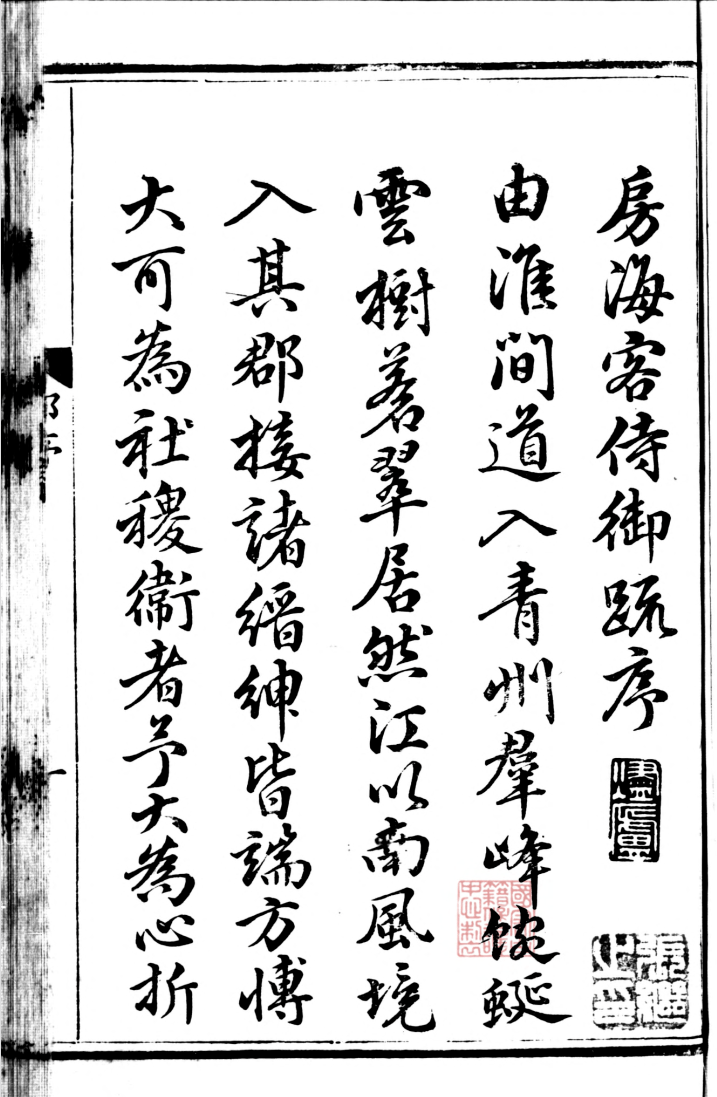 房海客侍御疏序
由淮間道入青州羣峰蜿蜒
雲樹蒼翠居然江以南風境
入其郡接諸縉紳皆端方博
大可為社稷衞者予大為心折
一